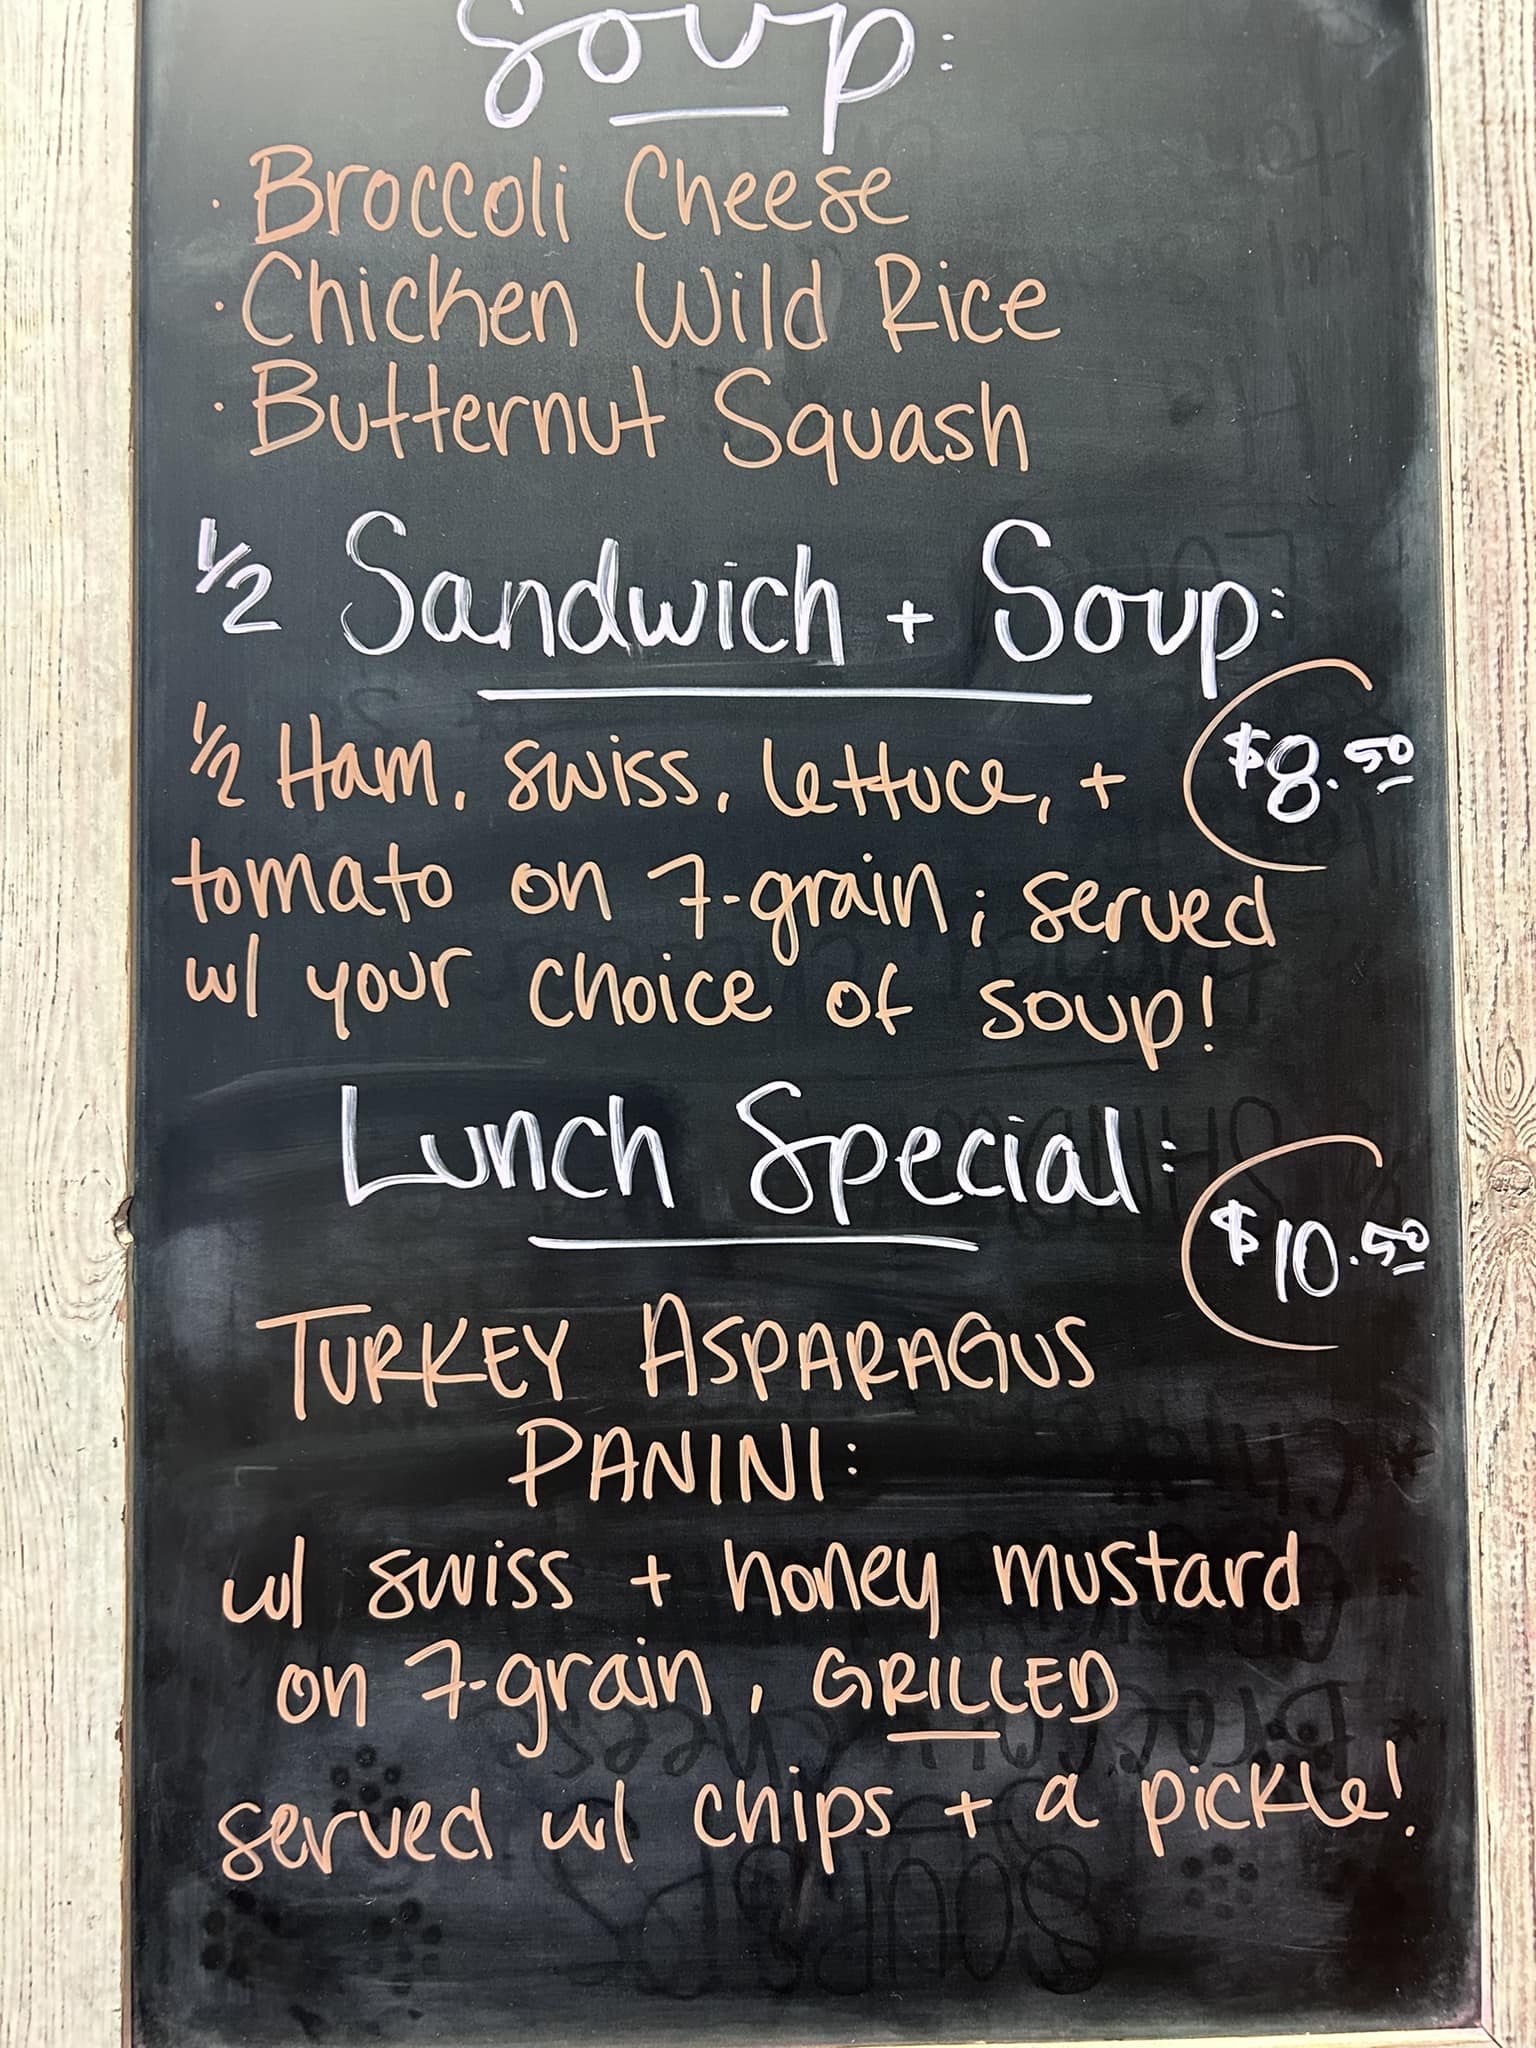 Soup:
· Broccoli Cheese
· Chicken Wild Rice
· Butternut Squash
1/2 Sandwich + Soup:
1/2 Ham, swiss, lettuce, +
$8.50
tomato on 7-grain; served
w/ your choice of soup!
Lunch Special:
$10.50
TURKEY ASPARAGUS
PANINI:
w/ swiss + honey mustard
on 7-grain, GRILLED
served w/ chips + a pickle!